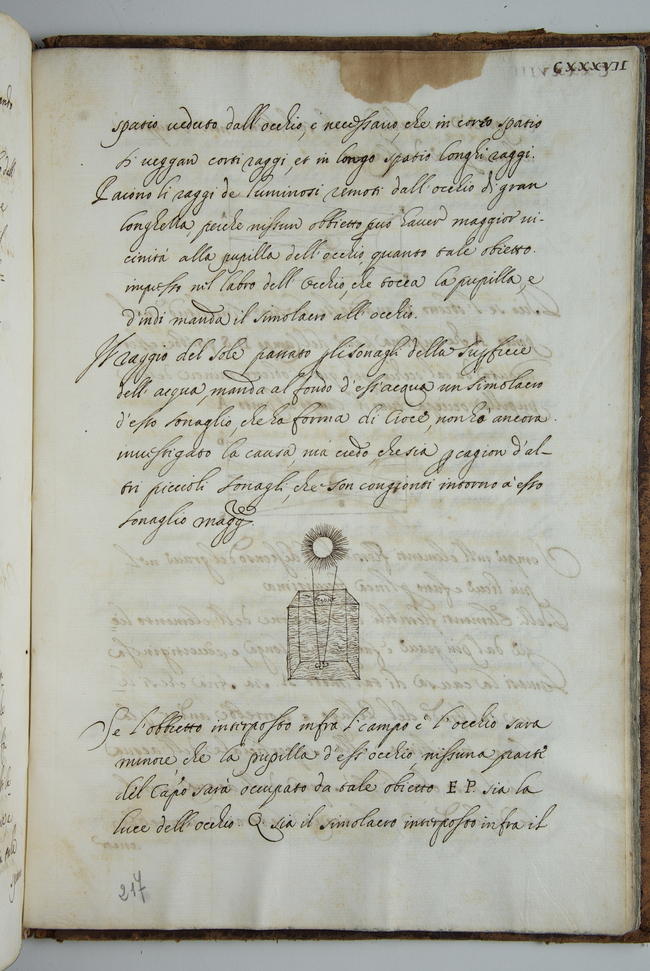 CXXXVII
spatio veduto dall'occhio, è necessario, che in corto spatio
si veggan corti raggi, et in longo spatio longhi raggi.
Paiono li raggi de luminosi remoti dall'occhio di gran
longhezza, perche nissun obbietto può haver maggior vi-
cinità alla pupilla dell'occhio, quanto tale obietto.
impresso nel labro dell'occhio, che tocca la pupilla, e
d'indi manda il simolacro all'occhio.
Il raggio del sole passato p̱ li sonagli della supficie
dell'acqua, manda al fondo d'ess'acqua un simolacro
d'esso sonaglio, che ha forma di Croce, non ho ancora
investigato la causa, ma credo, che sia p̱ cagion d'al-
tri piccioli sonagli, che son congionti intorno a esso
sonaglio magg.re
Se l'obbietto interposto infra l'campo e l'occhio sara
minore che la pupilla d'ess'occhio, nissuna parte
del Cāpo sarà occupato da tale obietto E P. sia la
luce dell'occhio Q sia il simolacro interposto infra il
217